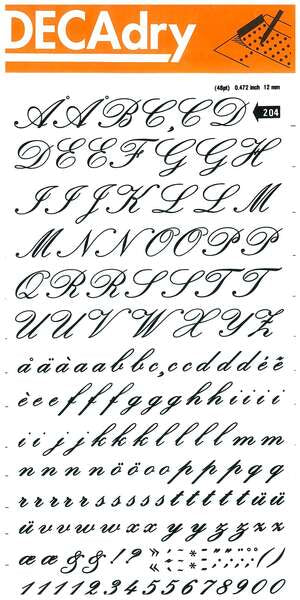 DECAdry
(48pt) 0.472 inch 12 mm
204
A Å B C , C D
D E E F G G H
I I J K L L M
M N N O O P P
Q R R S S T T
U U V W X Y Z
å ä à a b b c , c d d d é ě
è e e f f f g g g h h i i i i
i i j j k k k l l l l m m m
n n n n n ö ö o o p p p q q
r r r r r s s s s s t t t t t ü ü
ü v v v u w w x x y y z z z
æ æ & & ! ? ( )
1 1 1 2 2 3 3 4 5 5 6 7 8 9 0 0